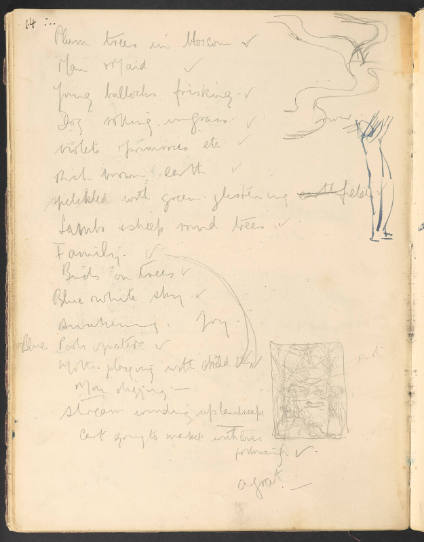 14
Plum trees in blossom ✓
Man & Maid ✓
Young bullocks frisking ✓
Dog rolling in grass ✓
violets primroses etc ✓
Rich brown earth ✓
speckled with green glistening field ✓
Lambs asleep round trees ✓
Family. ✓
Birds on trees ✓
Blue & white sky ✓
Awakening. Joy.
Blue Pools ✓
Mother playing with child ✓
Man digging —
Stream winding up landscape
Cart going to market with
✓
a goat. —